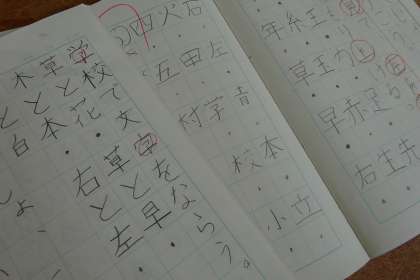 王力足先
糸玉赤生
年草早右
石左音本立
火田学校小
四五村
学校で文字をならう。
草と花草と早
木と本右と左
と白